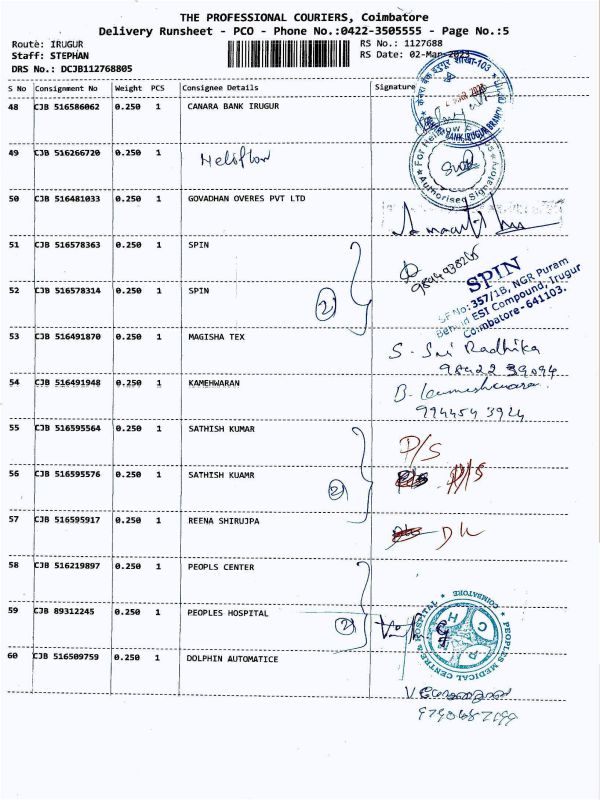 THE PROFESSIONAL COURIERS, Coimbatore
Delivery Runsheet - PCO - Phone No.:0422-3505555 - Page No.:5
Route: IRUGUR RS No.: 1127688
Staff: STEPHAN RS Date: 02-Mar-2023
DRS No.: DCJB112768805
S No Consignment No Weight PCS Consignee Details Signature
48 CJB 516586062 0.250 1 CANARA BANK IRUGUR
49 CJB 516266720 0.250 1 Heloflow
Authorised Signatory
50 CJB 516481033 0.250 1 GOVADHAN OVERES PVT LTD
51 CJB 516578363 0.250 1 SPIN
SPIN
SF No: 357/1B, NGR Puram
Behind ESI Compound, Irugur
Coimbatore - 641103.
52 CJB 516578314 0.250 1 SPIN
2
53 CJB 516491870 0.250 1 MAGISHA TEX S. Sri Radhika
98422 39094
54 CJB 516491948 0.250 1 KAMEHWARAN B. Kameshwaran
994454 3924
55 CJB 516595564 0.250 1 SATHISH KUMAR P/S
56 CJB 516595576 0.250 1 SATHISH KUAMR P/S
2
57 CJB 516595917 0.250 1 REENA SHIRUJPA
58 CJB 516219897 0.250 1 PEOPLS CENTER
59 CJB 89312245 0.250 1 PEOPLES HOSPITAL
2
PEOPLES MEDICAL CENTRE & HOSPITAL
COIMBATORE
P H C
60 CJB 516509759 0.250 1 DOLPHIN AUTOMATICE